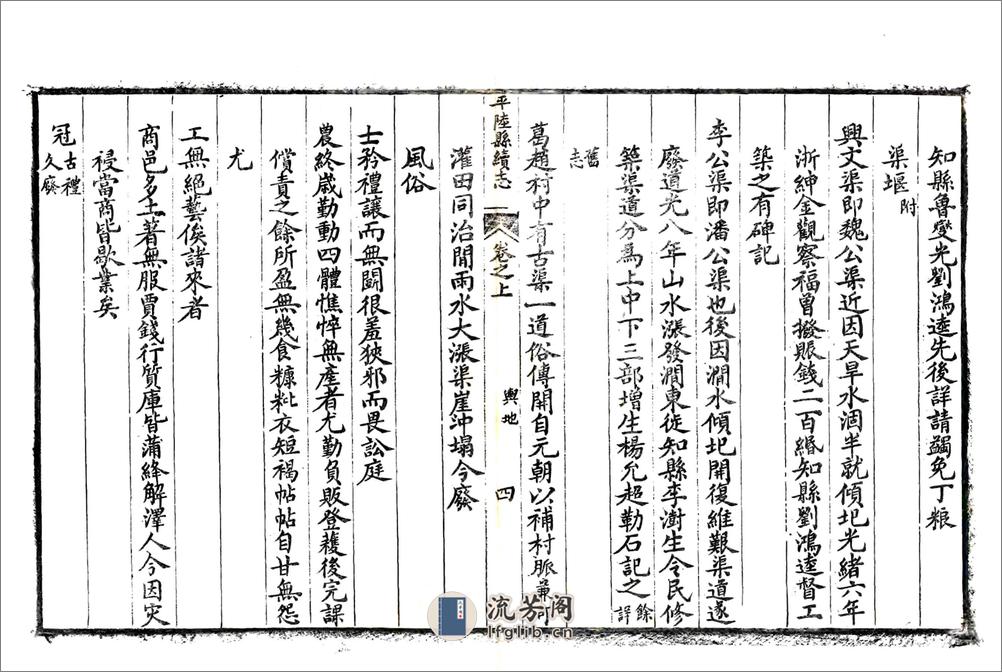 知縣魯燮光劉鴻逵先後詳請蠲免丁粮
渠堰附
興文渠即魏公渠近因天旱水涸半就傾圯光緒六年
浙紳金觀察福曾撥賑錢二百緡知縣劉鴻逵督工
築之有碑記
李公渠即潘公渠也後因澗水傾圯開復維艱渠道遂
廢道光八年山水漲發澗東徙知縣李澍生令民修
築渠道分為上中下三部增生楊允超勒石記之餘詳
舊志
葛趙村中有古渠一道俗傳開自元朝以補村脈兼可
平陸縣續志 卷之上 輿地 四
灌田同治間雨水大漲渠崖沖塌今廢
風俗
士矜禮讓而無鬭很羞狹邪而畏訟庭
農終歲勤動四體憔悴無產者尤勤負販登穫後完課
償責之餘所盈無幾食糠粃衣短褐帖帖自甘無怨
尤
工無絕藝俟諸來者
商邑多土著無服賈錢行質庫皆蒲絳解澤人今因灾
祲當商皆歇業矣
冠古禮久廢
流芳阁
lfglib.cn